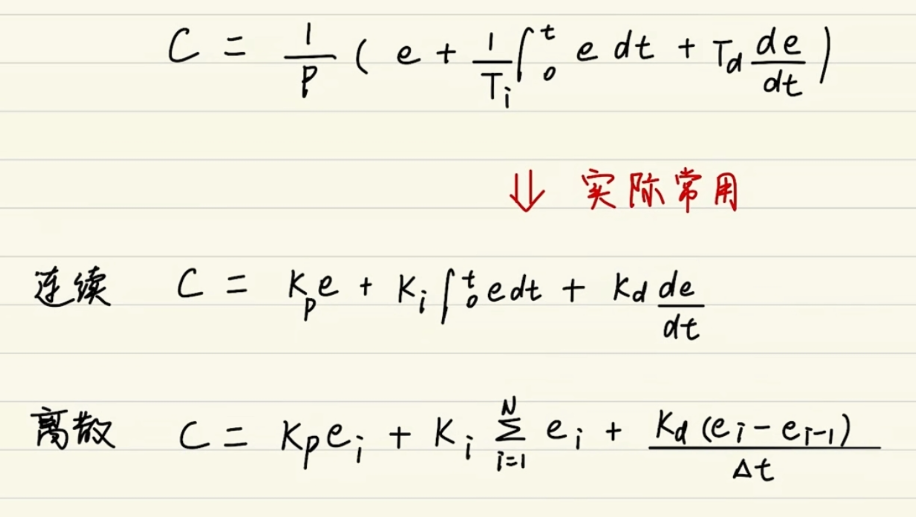 C = 1/P ( e + 1/T_i ∫_0^t e dt + T_d de/dt )
⇓ 实际常用
连续 C = K_p e + K_i ∫_0^t e dt + K_d de/dt
离散 C = K_p e_i + K_i Σ_{i=1}^N e_i + K_d (e_i - e_{i-1})/Δt